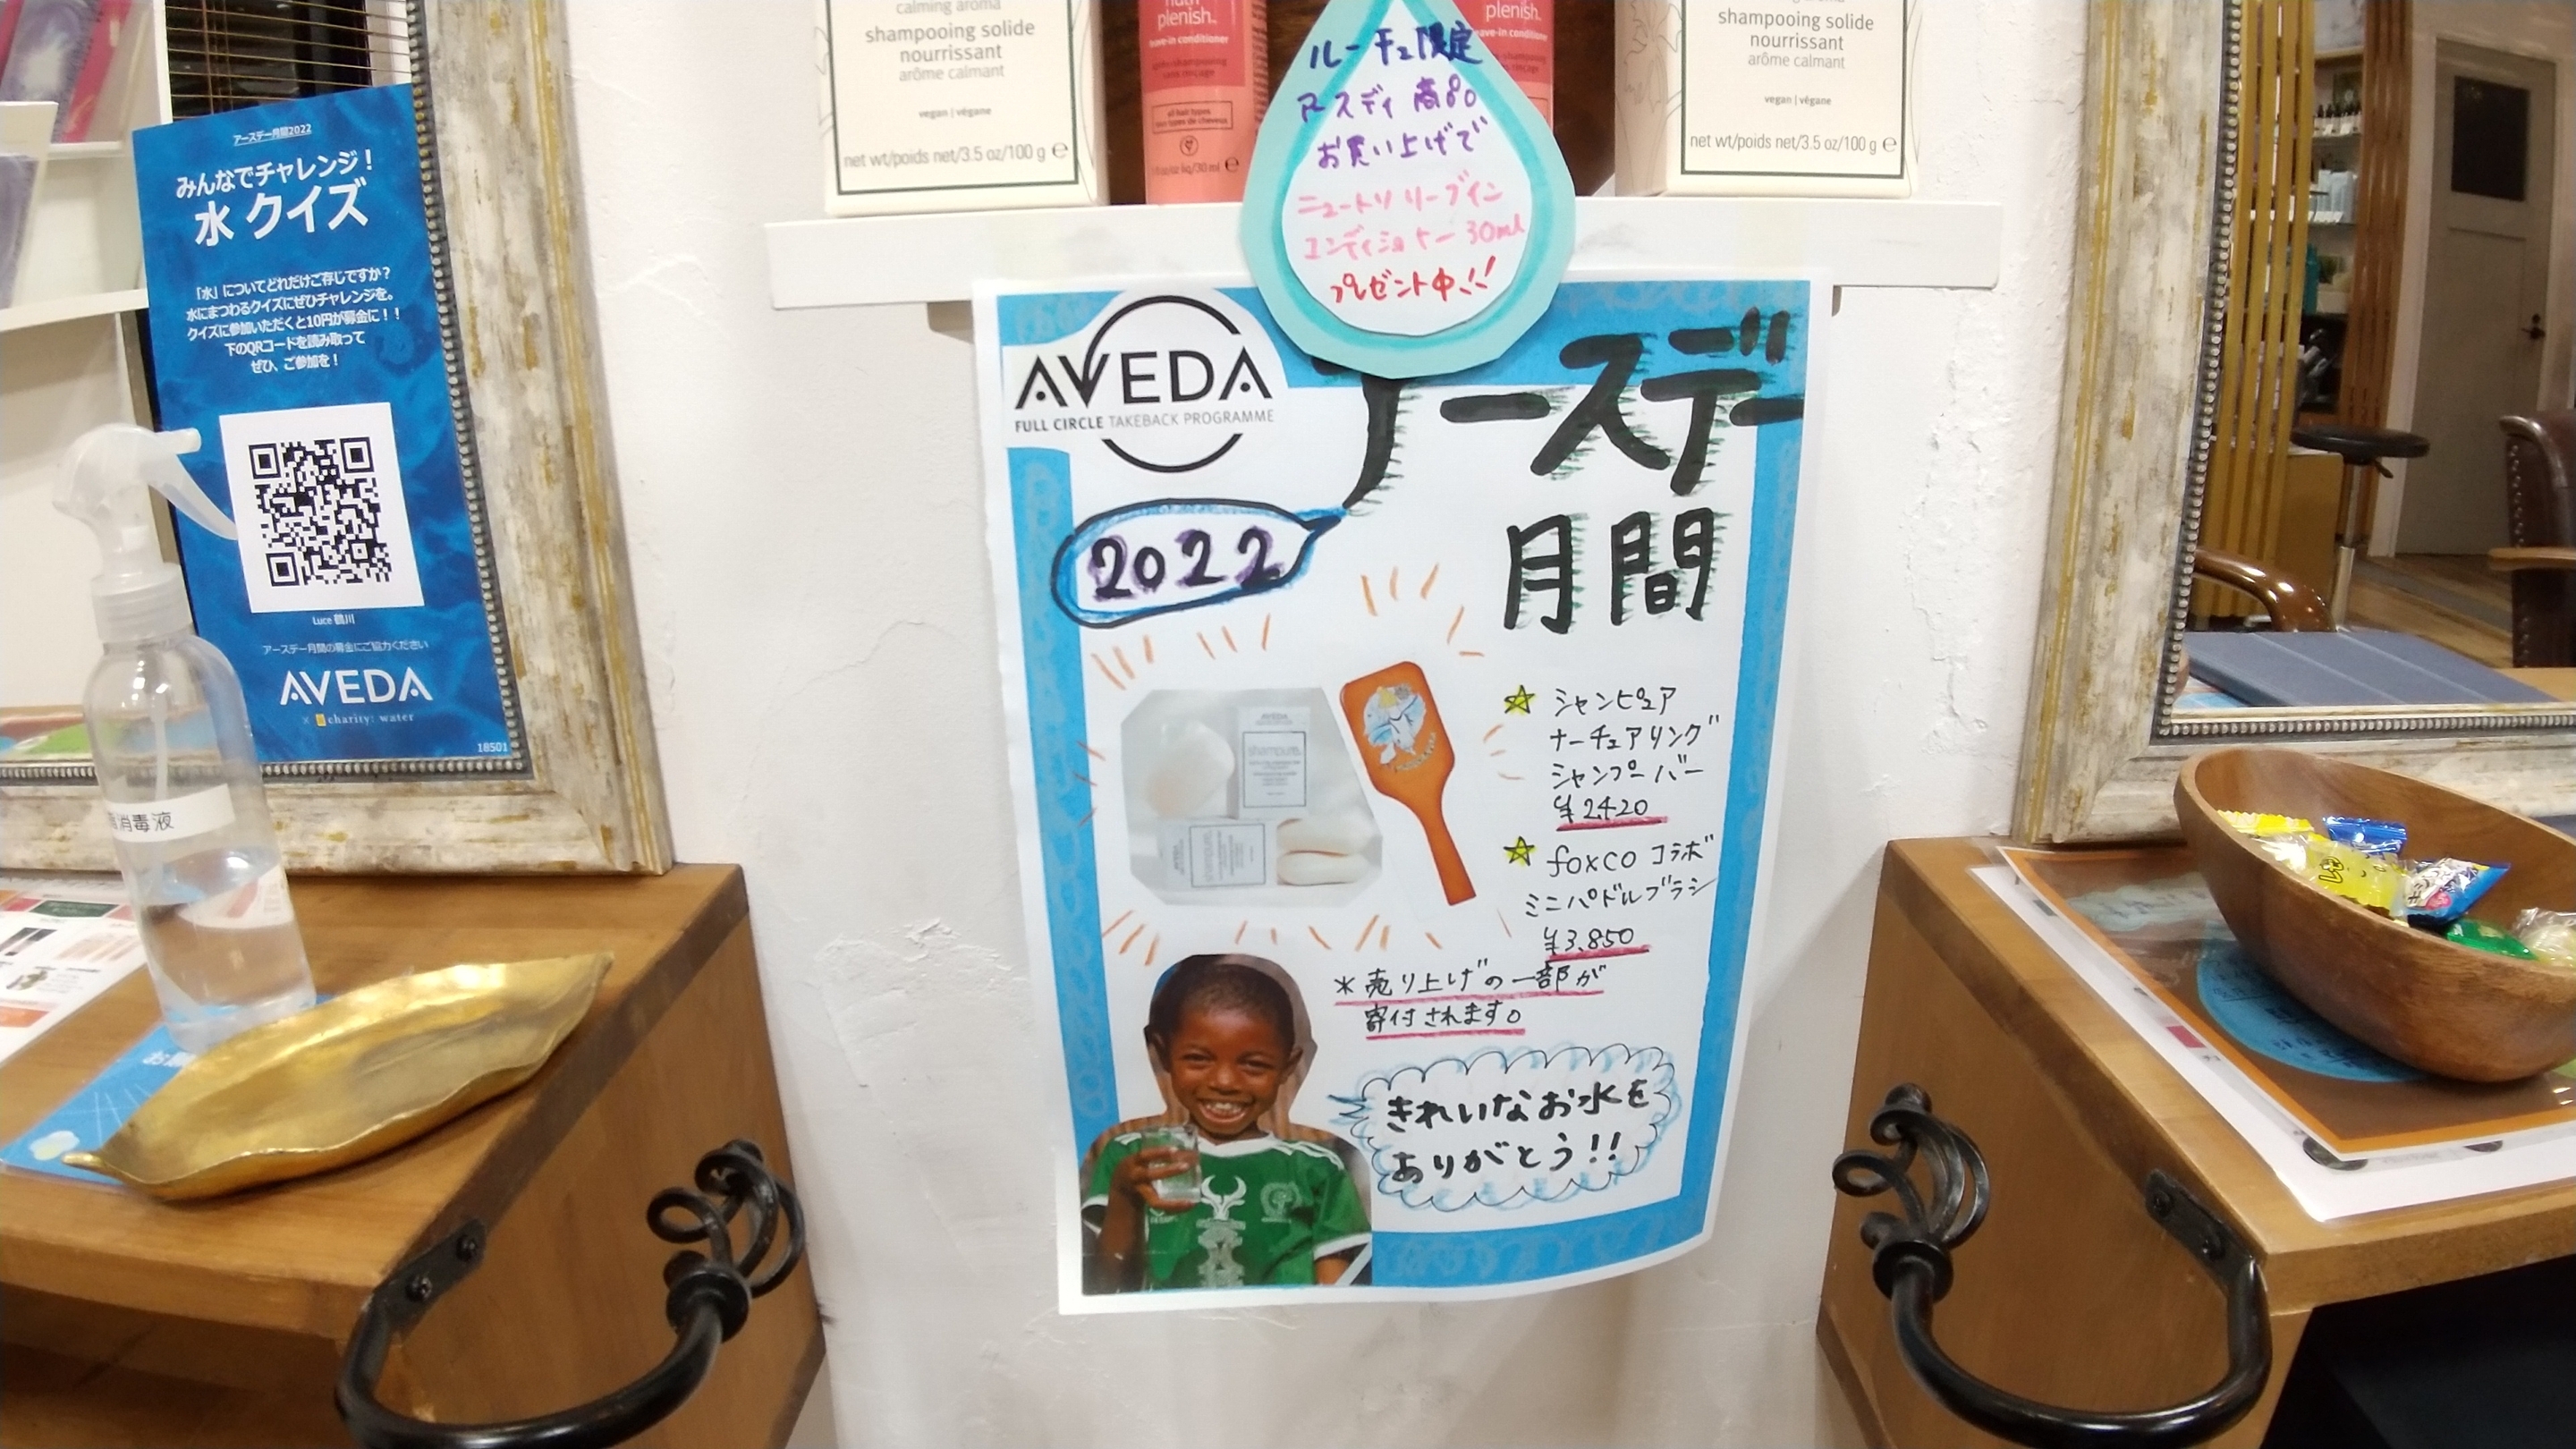 アースデー月間2022
みんなでチャレンジ!
水 クイズ
「水」についてどれだけご存じですか?
水にまつわるクイズにぜひチャレンジを。
クイズに参加いただくと10円が募金に!!
下のQRコードを読み取って
ぜひ、ご参加を!
Luce 鶴川
アースデー月間の募金にご協力ください
AVEDA
× charity: water
18501
消毒液
calming aroma
shampooing solide
nourrissant
arôme calmant
vegan | végane
net wt/poids net/3.5 oz/100 g ℮
plenish™
leave-in conditioner
plenish™
leave-in conditioner
shampooing solide
nourrissant
arôme calmant
vegan | végane
net wt/poids net/3.5 oz/100 g ℮
ルーチェ限定
アースディ 商品
お買い上げで
ニュートリ リーブイン
コンディショナー 30ml
プレゼント中!!
AVEDA
FULL CIRCLE TAKEBACK PROGRAMME
アースデー
月間
2022
AVEDA
shampure™
☆ シャンピュア
ナーチュアリング
シャンプー バー
¥2420
☆ foxco コラボ
ミニパドルブラシ
¥3.850
*売り上げの一部が
寄付されます。
きれいなお水を
ありがとう!!